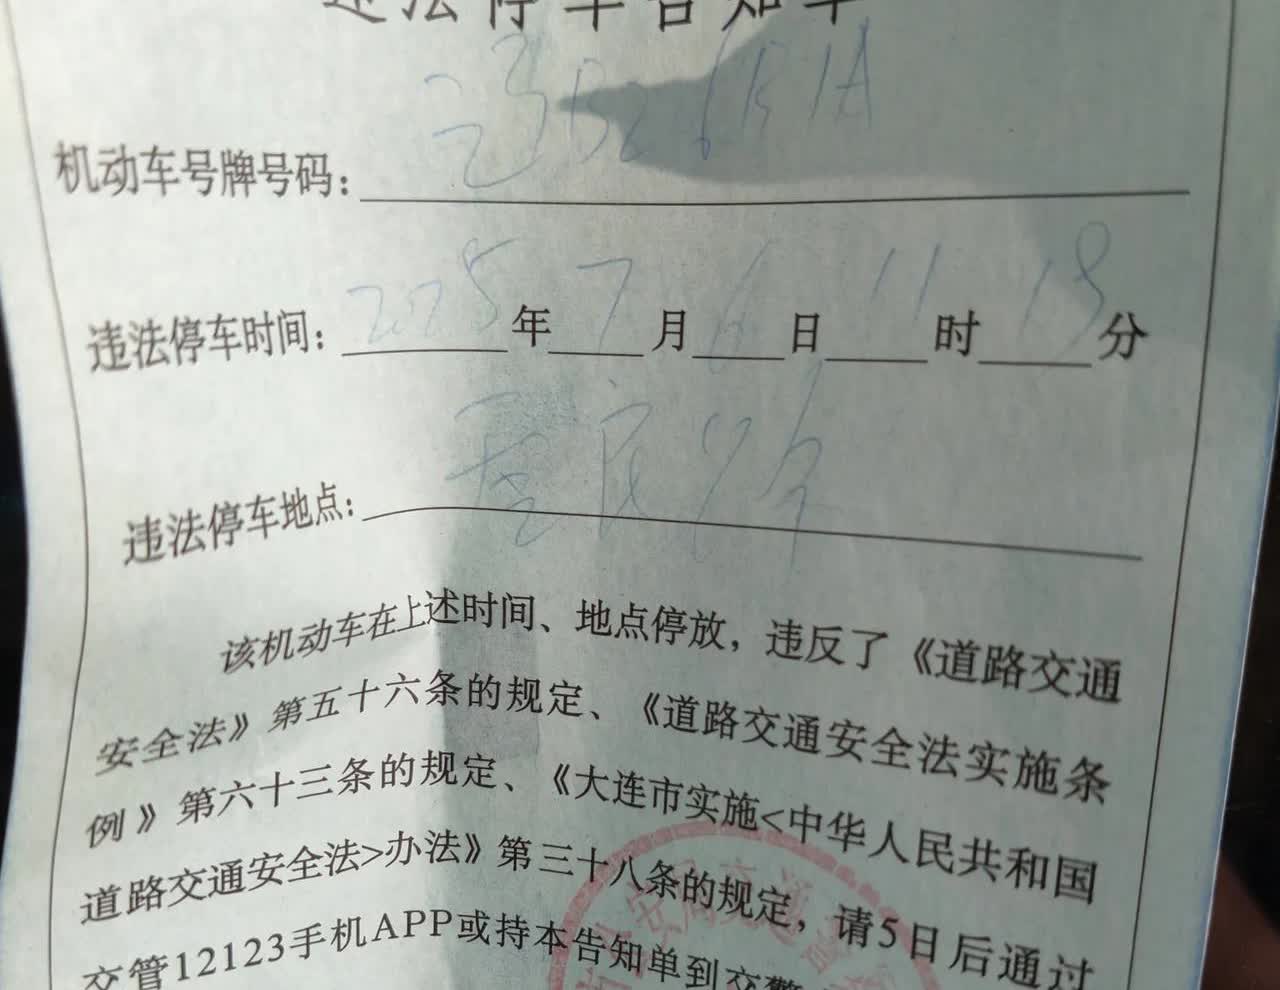 违法停车告知单
机动车号牌号码:
违法停车时间: 2025年7月6日11时19分
违法停车地点:
该机动车在上述时间、地点停放，违反了《道路交通
安全法》第五十六条的规定、《道路交通安全法实施条
例》第六十三条的规定、《大连市实施<中华人民共和国
道路交通安全法>办法》第三十八条的规定，请5日后通过
交管12123手机APP或持本告知单到交警